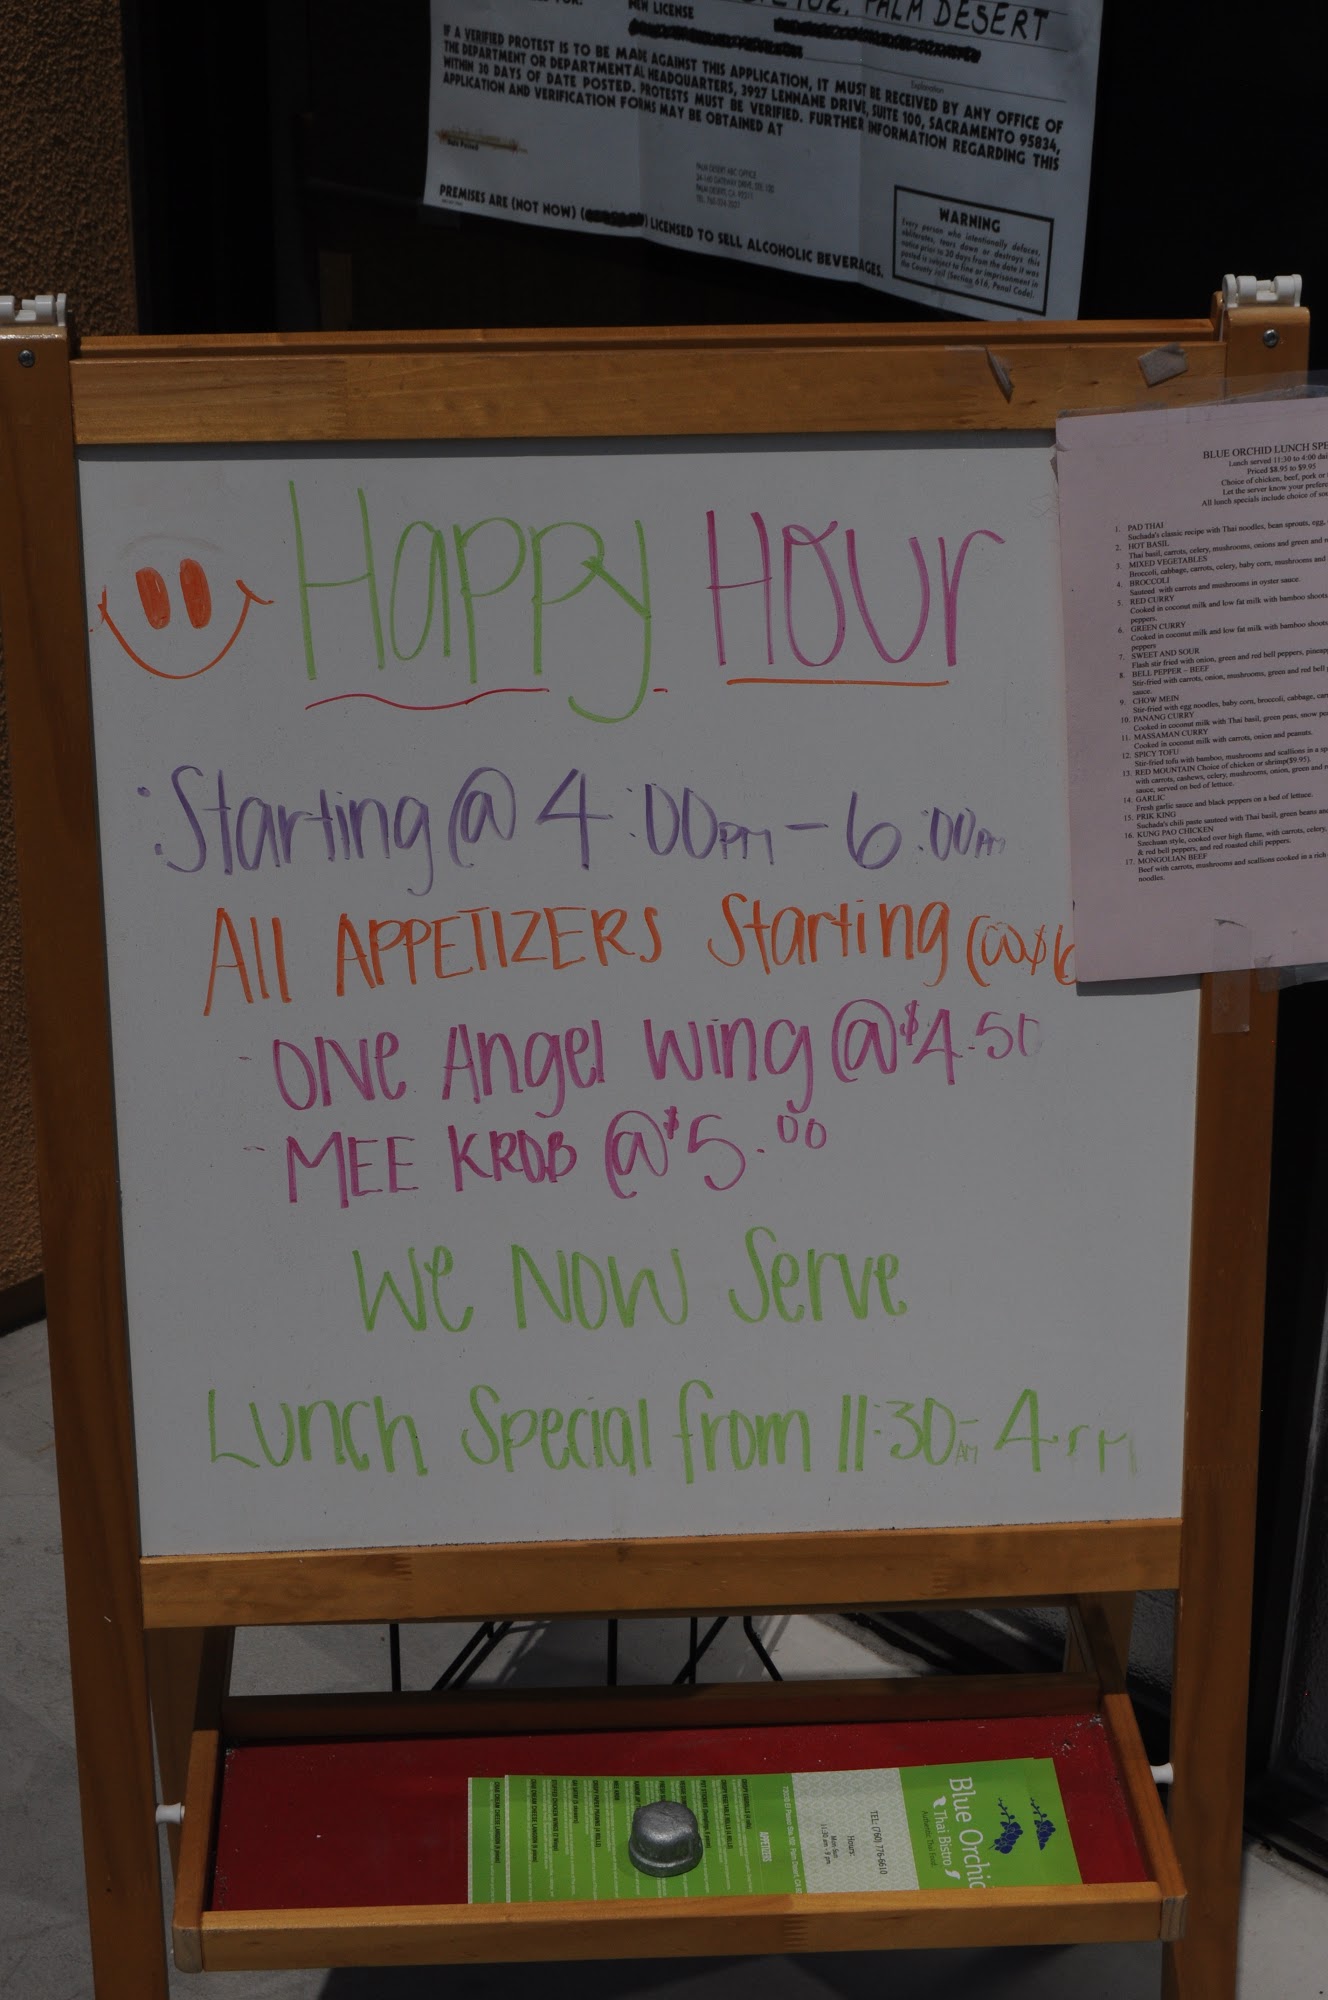 NEW LICENSE
PALM DESERT
Explanation
IF A VERIFIED PROTEST IS TO BE MADE AGAINST THIS APPLICATION, IT MUST BE RECEIVED BY ANY OFFICE OF
THE DEPARTMENT OR DEPARTMENTAL HEADQUARTERS, 3927 LENNANE DRIVE, SUITE 100, SACRAMENTO 95834,
WITHIN 30 DAYS OF DATE POSTED. PROTESTS MUST BE VERIFIED. FURTHER INFORMATION REGARDING THIS
APPLICATION AND VERIFICATION FORMS MAY BE OBTAINED AT
Date Posted
PALM DESERT ABC OFFICE
PREMISES ARE (NOT NOW) ( ) LICENSED TO SELL ALCOHOLIC BEVERAGES.
WARNING
Every person who intentionally defaces,
obliterates, tears down or destroys this
notice prior to 30 days from the date it was
posted is subject to fine or imprisonment in
the County jail (Section 616, Penal Code).
Happy Hour
Starting @ 4:00PM - 6:00PM
All APPETIZERS Starting @ $6
- ONE Angel Wing @ $4.50
- MEE KROB @ $5.00
We Now Serve
Lunch Special from 11:30AM - 4PM
BLUE ORCHID LUNCH
Lunch served 11:30 to 4:00
Priced $8.95 to $9.95
Choice of chicken, beef, pork or
Let the server know your
All lunch specials include choice of
1. PAD THAI
Suchada's classic recipe with Thai noodles, bean sprouts, egg,
2. HOT BASIL
Thai basil, carrots, celery, mushrooms, onions and green and
3. MIXED VEGETABLES
Broccoli, cabbage, carrots, celery, baby corn, mushrooms and
4. BROCCOLI
Sauteed with carrots and mushrooms in oyster sauce.
5. RED CURRY
Cooked in coconut milk and low fat milk with bamboo
peppers.
6. GREEN CURRY
Cooked in coconut milk and low fat milk with bamboo
peppers
7. SWEET AND SOUR
Flash stir fried with onion, green and red bell peppers,
8. BELL PEPPER – BEEF
Stir-fried with carrots, onion, mushrooms, green and red bell
sauce.
9. CHOW MEIN
Stir-fried with egg noodles, baby corn, broccoli, cabbage,
10. PANANG CURRY
Cooked in coconut milk with Thai basil, green peas, snow
11. MASSAMAN CURRY
Cooked in coconut milk with carrots, onion and peanuts.
12. SPICY TOFU
Stir-fried tofu with bamboo, mushrooms and scallions in a
13. RED MOUNTAIN Choice of chicken or shrimp($9.95).
with carrots, cashews, celery, mushrooms, onion, green and
sauce, served on bed of lettuce.
14. GARLIC
Fresh garlic sauce and black peppers on a bed of lettuce.
15. PRIK KING
Suchada's chili paste sauteed with Thai basil, green beans and
16. KUNG PAO CHICKEN
Szechuan style, cooked over high flame, with carrots, celery,
& red bell peppers, and red roasted chili peppers.
17. MONGOLIAN BEEF
Beef with carrots, mushrooms and scallions cooked in a rich
noodles.
Blue Orchid
Thai Bistro
Authentic Thai Food
TEL: (760) 776-6610
Hours:
Mon-Sun
11:30 am - 9 pm
APPETIZERS